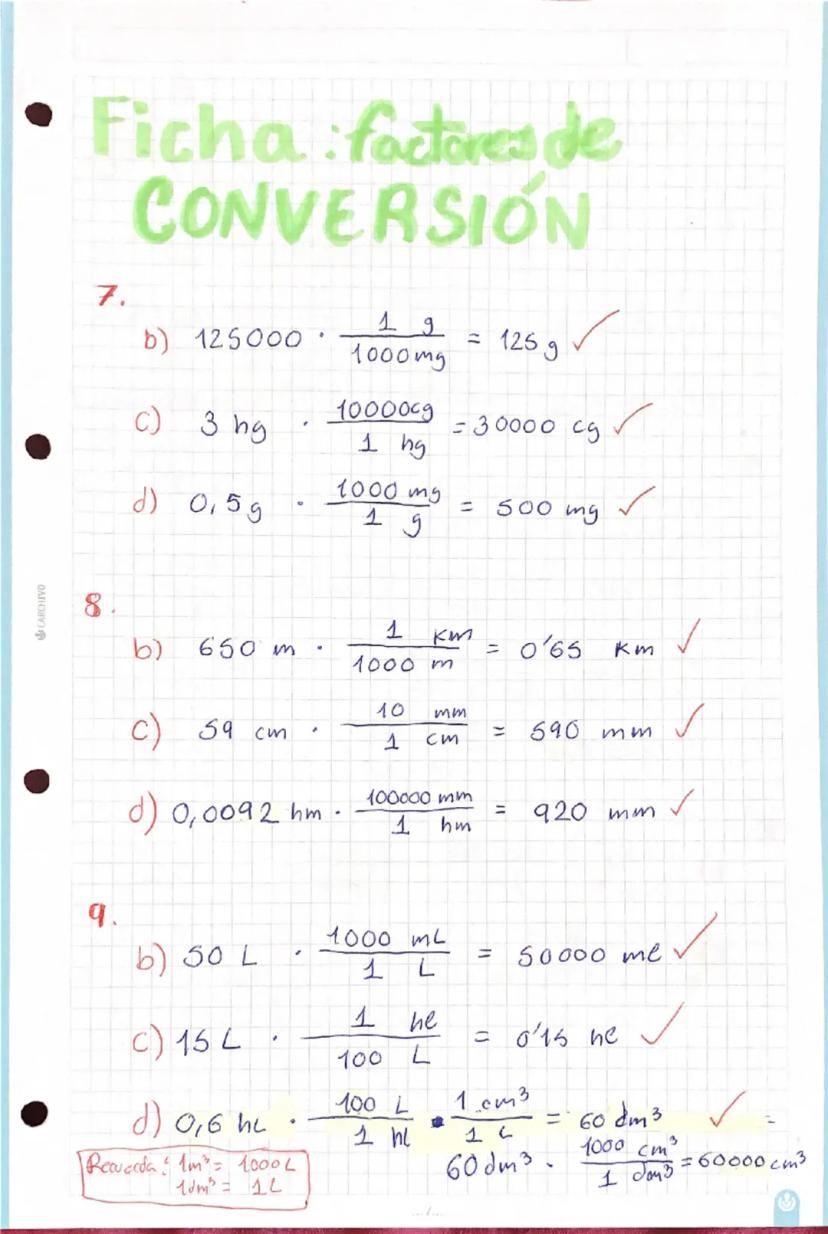 Ficha : factores de
CONVERSIÓN
7.
b) 125000 · 1 g / 1000 mg = 125 g ✓
c) 3 hg · 10000cg / 1 hg = 30000 cg ✓
d) 0,5 g · 1000 mg / 1 g = 500 mg ✓
CARCHIVO
8.
b) 650 m · 1 Km / 1000 m = 0'65 Km ✓
c) 59 cm · 10 mm / 1 cm = 590 mm ✓
d) 0,0092 hm · 100000 mm / 1 hm = 920 mm ✓
9.
b) 50 L · 1000 mL / 1 L = 50000 ml ✓
c) 15 L · 1 hl / 100 L = 0'15 hl ✓
d) 0,6 hL · 100 L / 1 hl · 1 cm³ / 1 L = 60 dm³ ✓ =
60 dm³ · 1000 cm³ / 1 dm³ = 60000 cm³
Recuerda: 1m³ = 1000 L
1dm³ = 1L